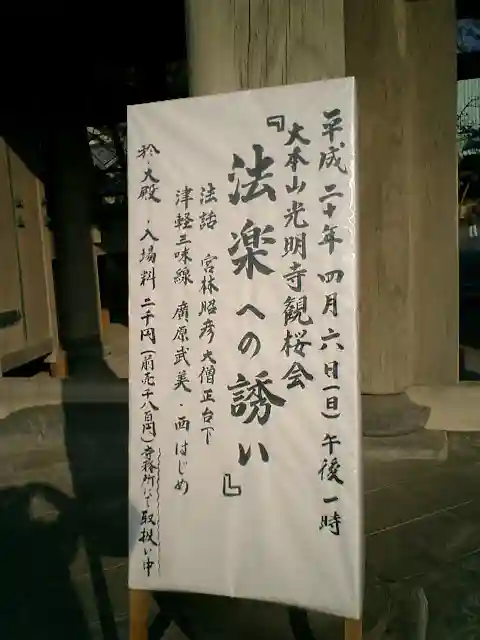 平成二十年四月六日(日)午後一時
大本山光明寺観桜会
『法楽への誘い』
法話 宮林昭彦大僧正台下
津軽三味線 廣原武美・西はじめ
於・大殿・入場料 二千円(前売千八百円)寺務所にて取扱い中